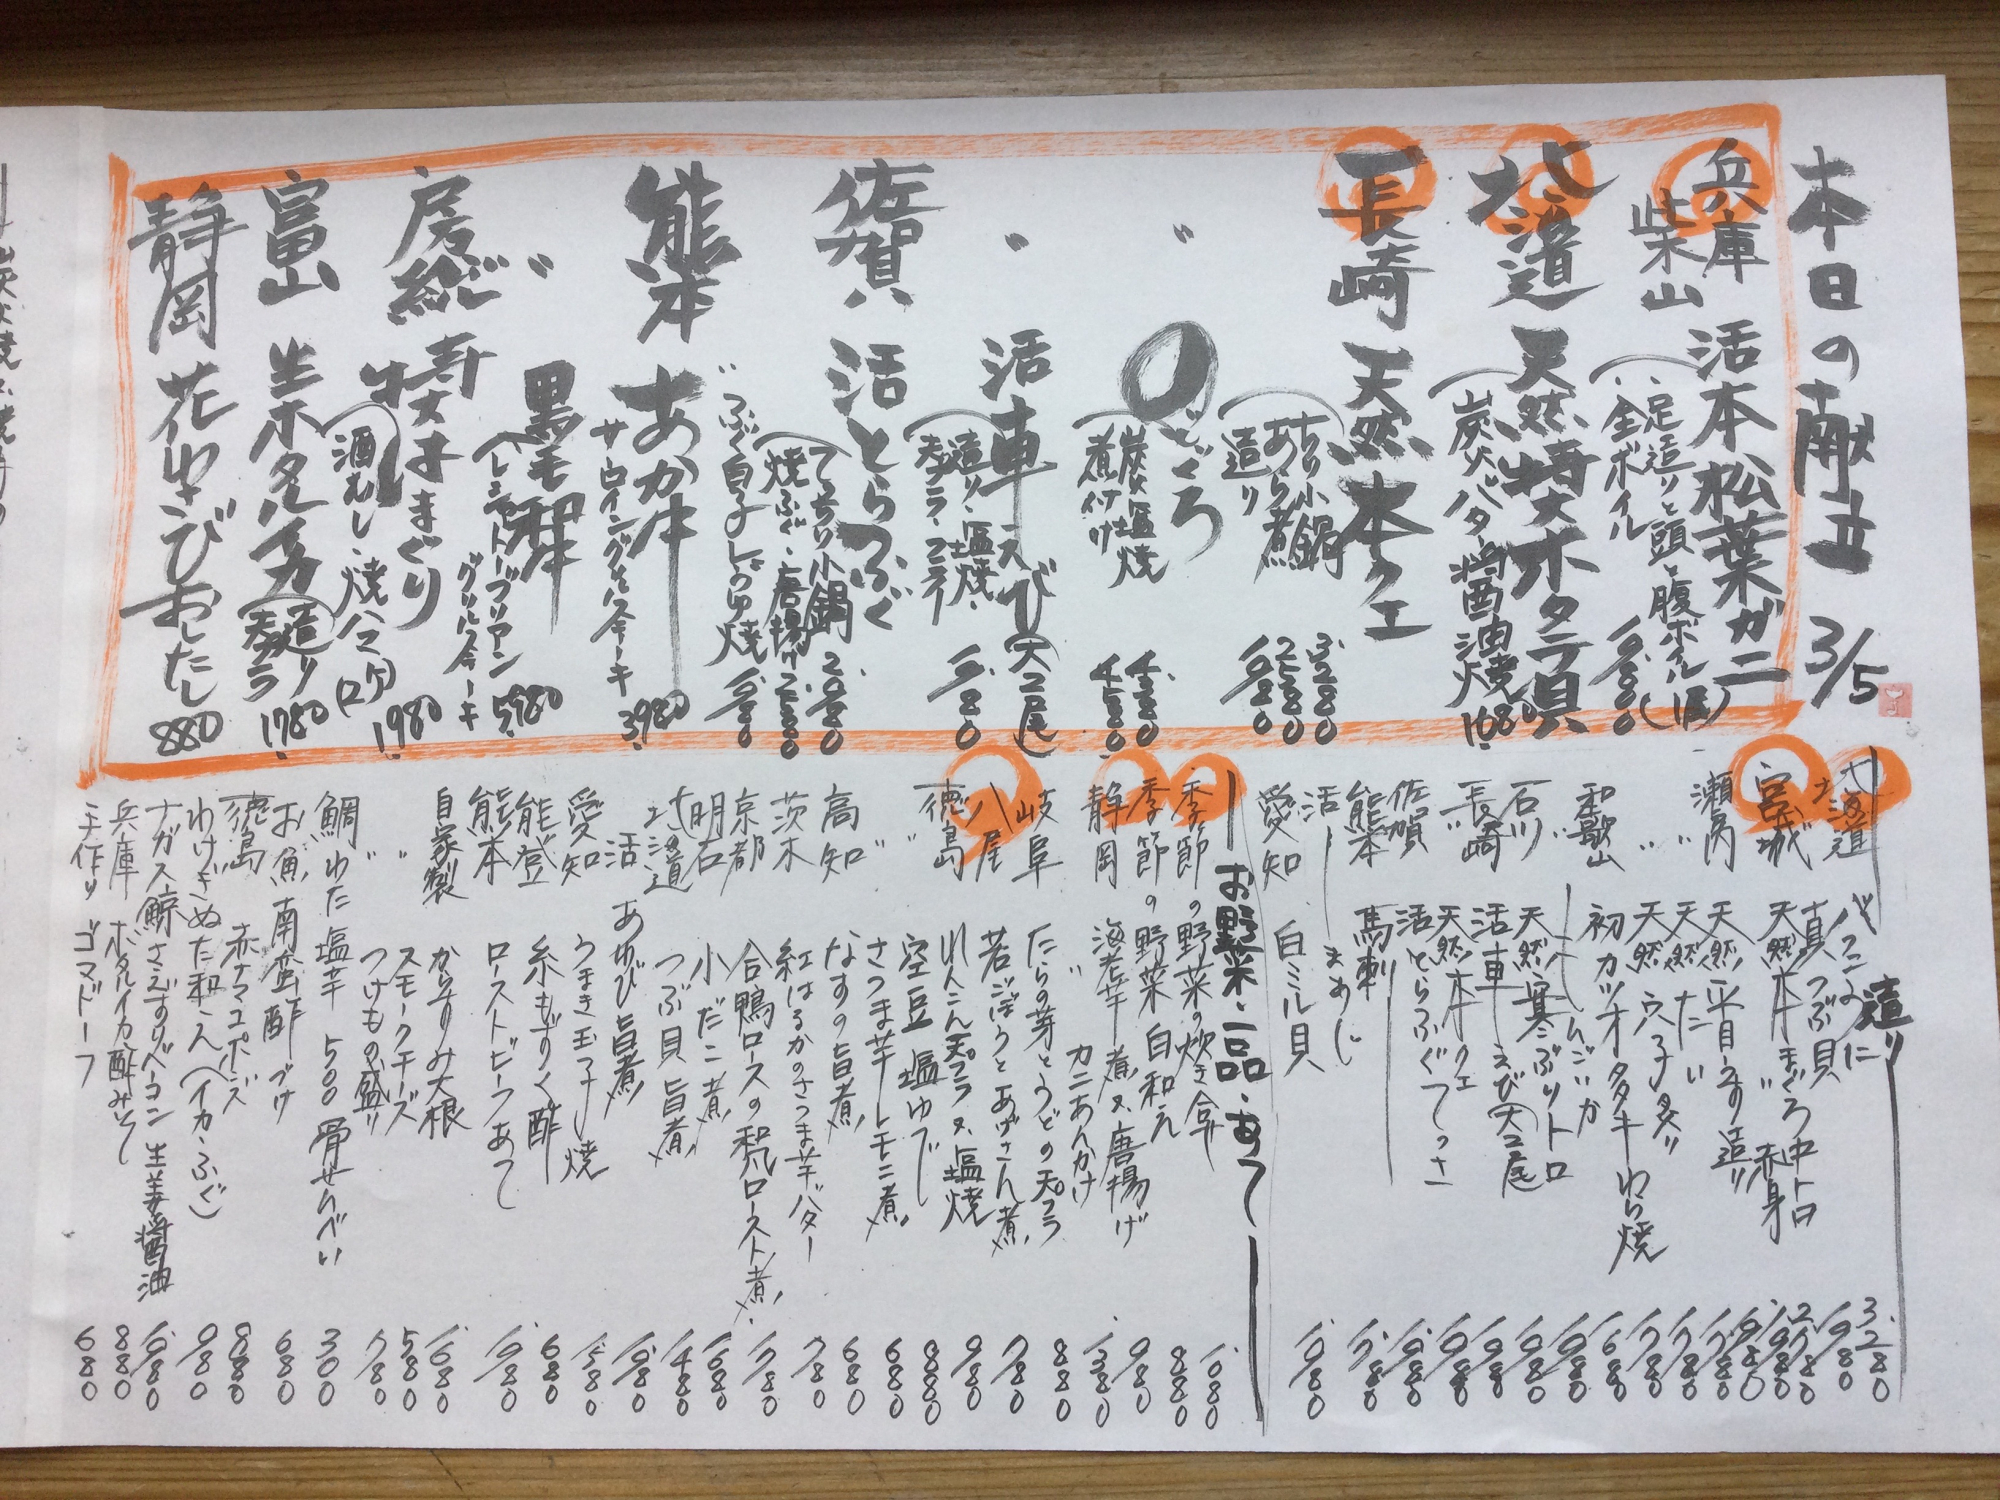 本日の献立 3/5
兵庫
柴山 活本松葉ガニ
足造りと頭と腹ボイル(1尾)
全ボイル
北海道 天然特大ホタテ貝
炭火バター醤油焼 1080
長崎 天然本クエ
ちり小鍋 3280
あら煮 2580
造り 1980
〃 のどぐろ
炭火塩焼 4380
煮付け 4580
〃 活車えび(大2尾)
造り・塩焼・
天プラ・フライ
佐賀 活とらふぐ
てっちり小鍋 2080
焼ふぐ・唐揚げ 2580
ふぐ白子しょうゆ焼
熊本 あか牛
サーロイングリルステーキ 3980
〃 黒毛和牛
(シャトーブリアン
グリルステーキ 5980
房総 特大はまぐり
(酒むし・焼ハマ(2ケ) 1980
富山 生ホタルイカ(造り
天プラ 1780
静岡 花わさびおしたし 880
造り
北海道 バフンうに 3280
真つぶ貝 1980
宮城 天然本まぐろ 中トロ 2780
〃 赤身 1980
瀬戸内 天然平目うす造り 1780
〃 天然たい 1780
〃 天然穴子炙り 1780
和歌山 初カツオタタキ わら焼 1680
石川 天然寒ぶりトロ 1980
〃 活車えび(大2尾
長崎 天然本クエ 1980
佐賀 活とらふぐてっさ 1980
熊本 馬刺し 1780
活
愛知 白ミル貝 1980
お野菜・一品・あて
季節の野菜の炊き合せ 1080
季節の野菜 白和え 880
静岡 海老芋 煮又唐揚げ 980
〃 カニあんかけ 1380
岐阜 たらの芽とうどの天プラ 880
八尾 若ごぼうとあげさん煮 780
徳島 れんこん天プラ又塩焼 980
〃 空豆 塩ゆで 880
さつま芋レモン煮 680
高知 なすの旨煮 680
茨木 紅はるかのさつま芋バター 780
京都 合鴨ロースの和風ロースト煮 1780
明石 小だこ煮 1680
北海道 つぶ貝旨煮 1480
活あわび旨煮
愛知 うまき玉子焼
能登 糸もずく酢 680
熊本 ローストビーフあて 1980
自家製 からすみ大根 1680
〃 スモークチーズ 580
〃 つけもの盛り 780
鯛わた塩辛 500 骨せんべい 300
お魚南蛮酢づけ 680
徳島 赤ナマコポン酢 880
わけぎぬた和え(イカ・ふぐ) 980
ナガス鯨さえずりベーコン 生姜醤油 1680
兵庫 ホタルイカ酢みそ 880
手作り ゴマドーフ 680